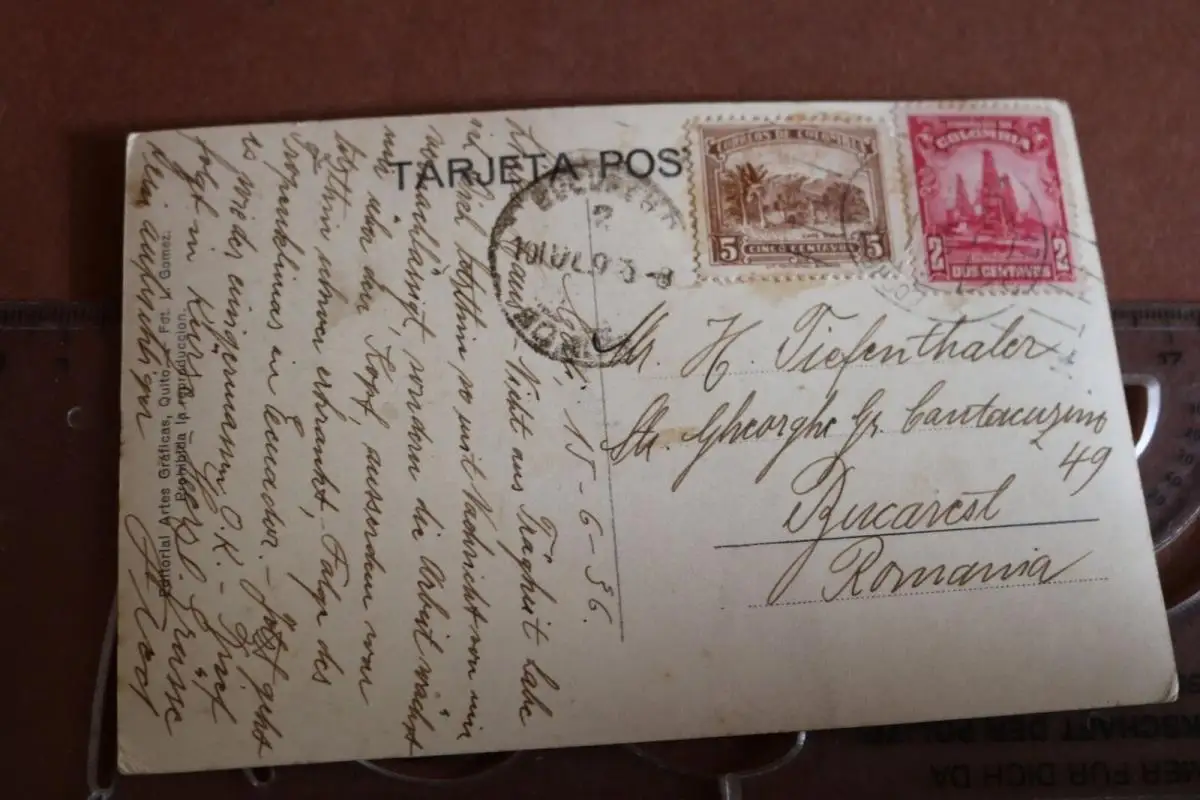 TARJETA POS
CORREOS DE COLOMBIA
5 CINCO CENTAVOS 5
COLOMBIA
2 DOS CENTAVOS 2
Editorial Artes Gráficas, Quito. - Fot. L. Gomez.
Prohibida la reproducción.
15-6-36.
Nicht aus Trägheit habe
so weit Nachricht von mir
vernachlässigt, sondern die Arbeit wächst
mir über den Kopf, ausserdem war
letzthin schwer erkrankt, - Folge des
Tropenklimas in Ecuador. - Jetzt geht
es wieder einigermassen O.K. - Brief
folgt in Kürze. Herzl. Grüsse
Dein aufrichtiger
Mr. H. Tiefenthaler
Str. Gheorghe Gr. Cantacuzino
49
Bucarest
Romania